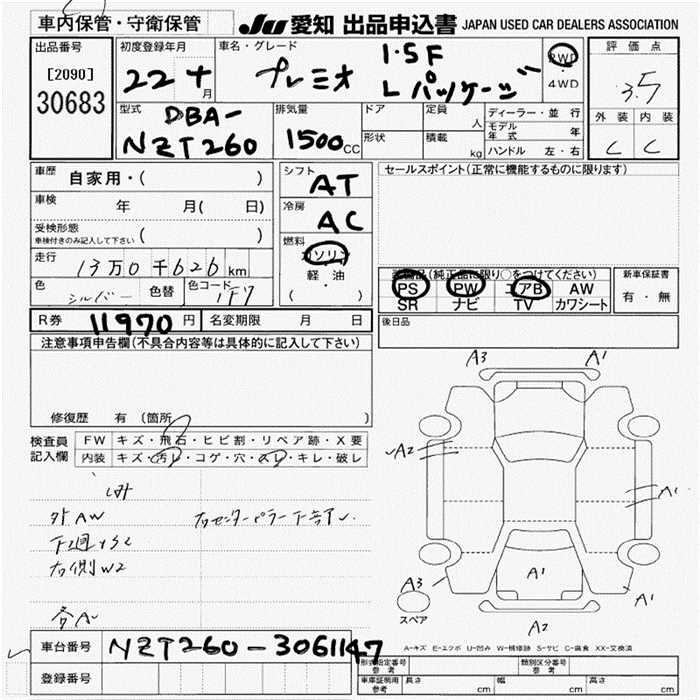 車内保管・守衛保管 JU 愛知 出品申込書 JAPAN USED CAR DEALERS ASSOCIATION
出品番号 初度登録年月 車名・グレード 評価点
[2090] 22 十 月 プレミオ 1.5F 2WD
30683 Lパッケージ ・4WD 3.5
型式 排気量 ドア 定員 人 ディーラー・並行 外装 内装
DBA- 1500CC 形状 積載 kg モデル年式 年 C C
NZT260 ハンドル 左・右
車歴 自家用・( ) シフト AT セールスポイント(正常に機能するものに限ります)
車検 年 月( 日) 冷房 AC
受検形態 車検付きのみ記入して下さい ( )
燃料 ガソリン
走行 13万0千626km 軽・油 装備品(純正品に限り○をつけてください) 新車保証書
色 シルバー 色替 色コード 1F7 ( ・ ) PS PW エアB AW 有・無
SR ナビ TV カワシート
R券 11970円 名変期限 月 日 後日品
注意事項申告欄(不具合内容等は具体的に記入して下さい)
修復歴 有 (箇所 )
検査員 FW キズ・飛石・ヒビ割・リペア跡・X要
記入欄 内装 キズ・汚レ・コゲ・穴・スレ・キレ・破レ
外AW
下廻りS2
右側W2
A3 A1
A2
A1
A3 A1 A1
スペア A2
車台番号 NZT260-3061147 A-キズ E-エクボ U-凹み W-補修跡 S-サビ C-腐食 XX-交換済
登録番号 形式指定番号 参考 類別区分番号 参考
車庫証明用 参考 長さ cm 幅 cm 高さ cm